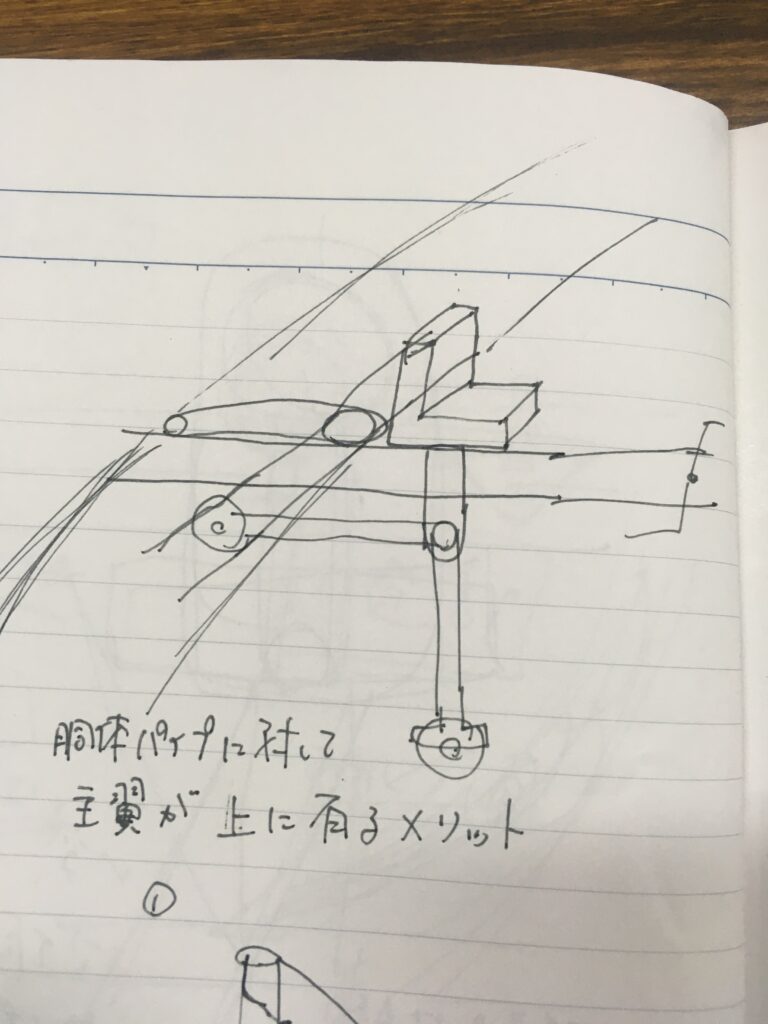 胴体パイプに対して
主翼が上に有るメリット
①